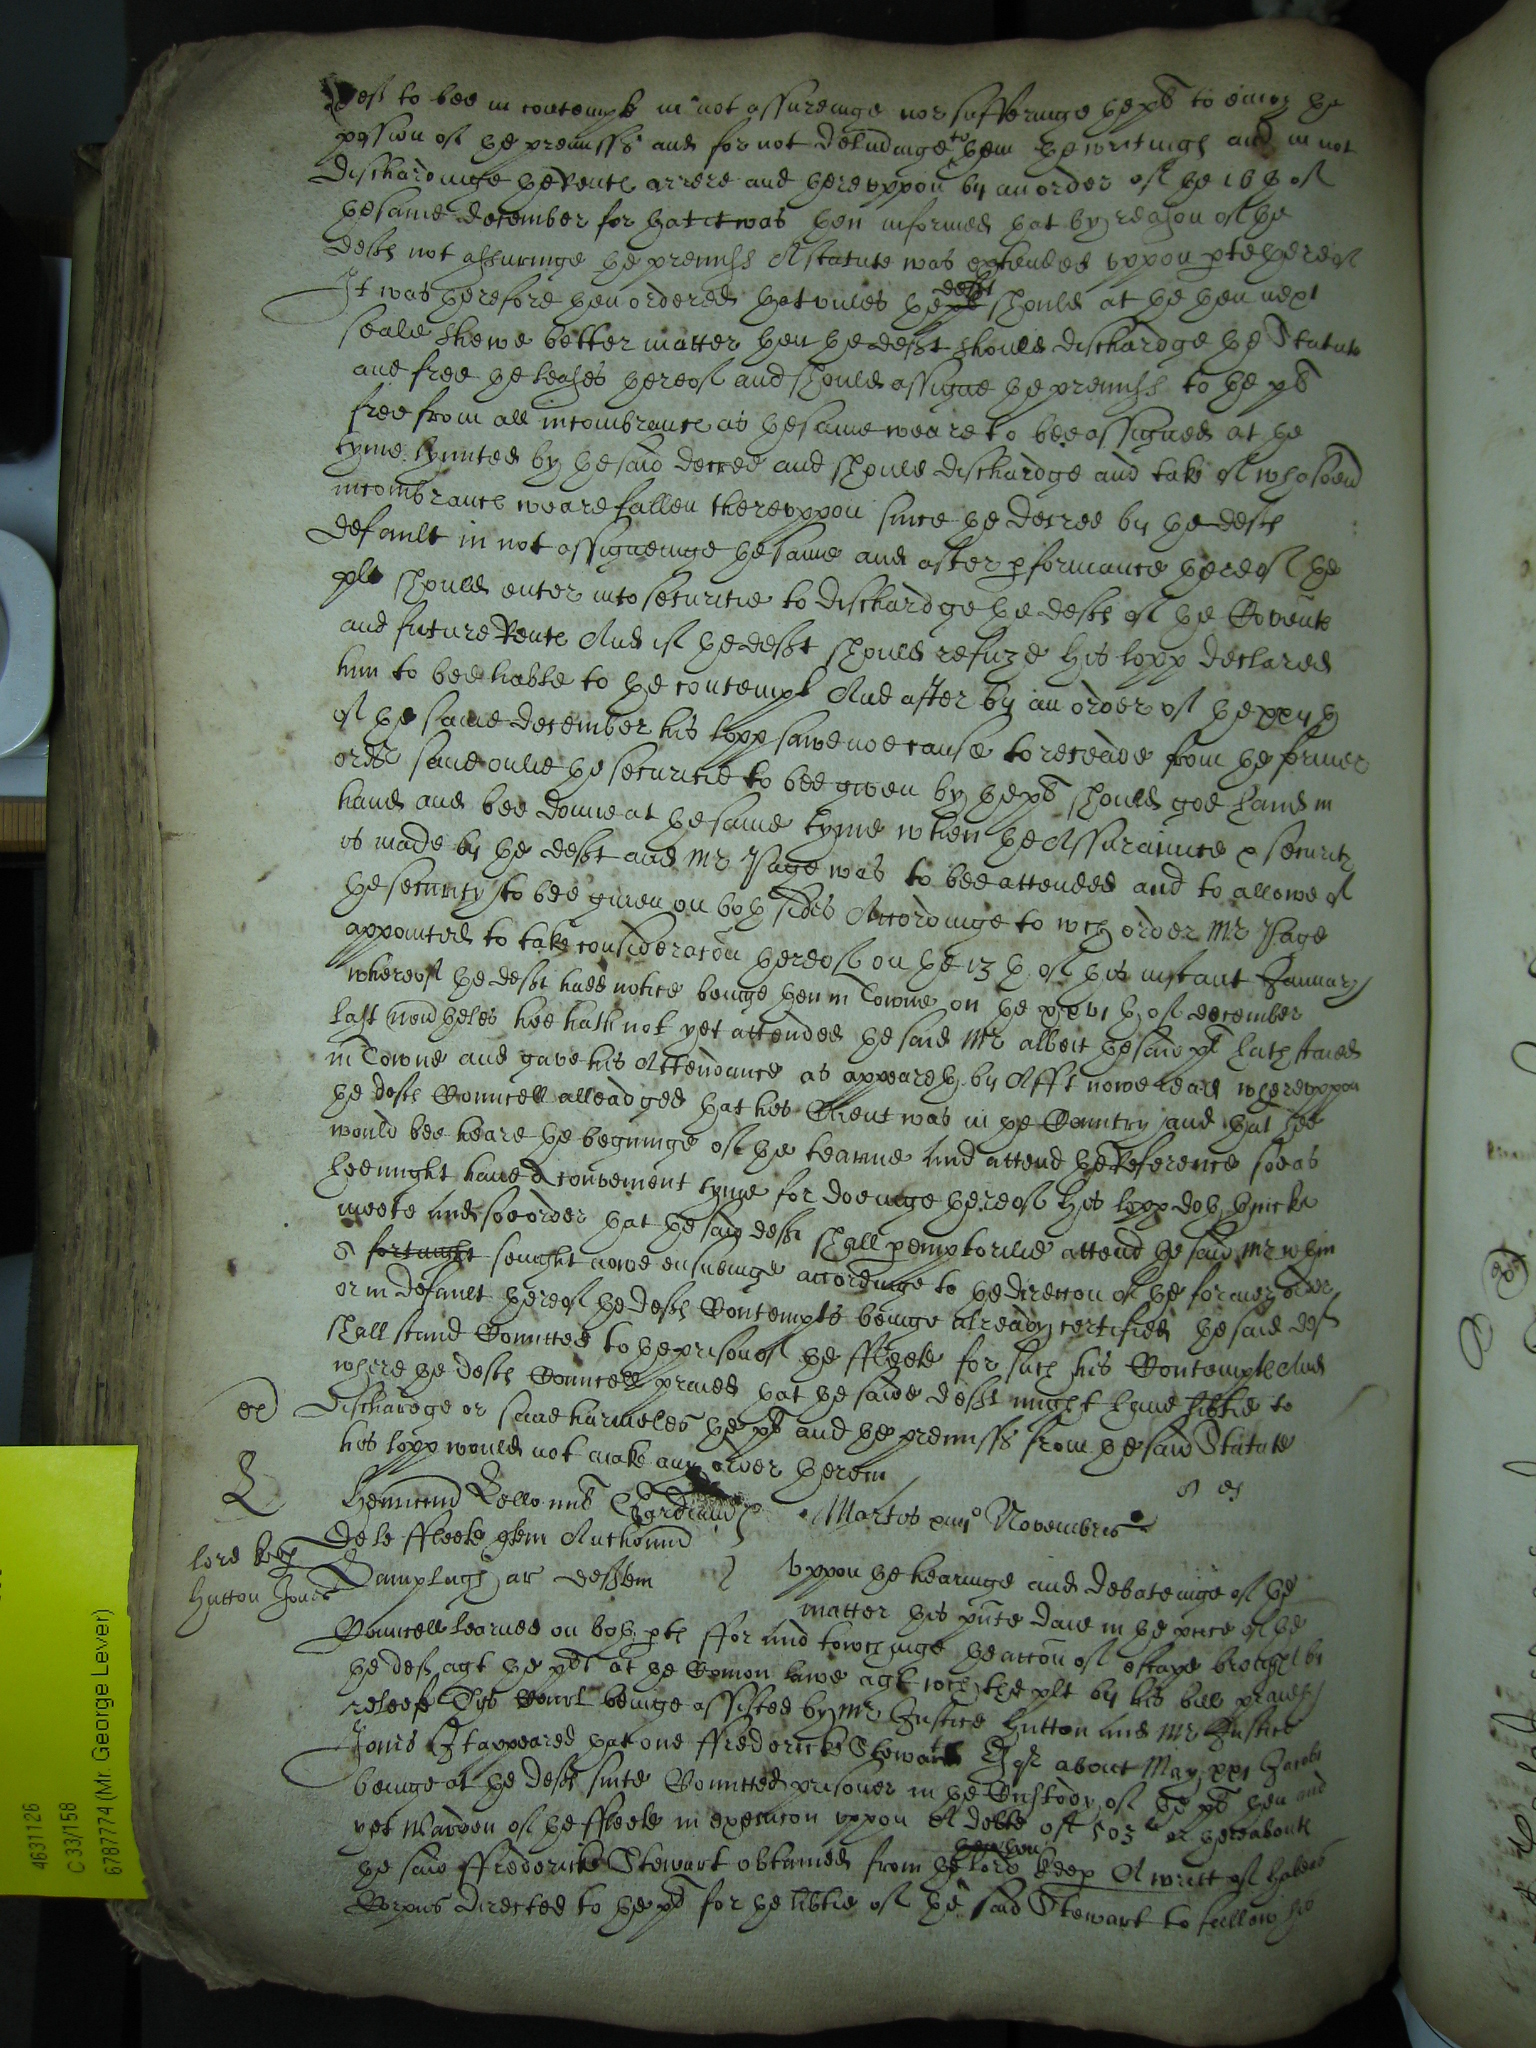 deft to bee in contempt in not assureinge nor sufferinge the plt to enioy the
possion of the premisss and for not deliudinge to them the writings and in not
dischardinge the Rente arrere and therevppon by an order of the 18 th of
the same december for that it was then informed that by reason of the
defts not assuringe the premiss A statute was extended vppon pte thereof
It was therefore then ordered that vnles the plt deft should at the then next
seale shewe better matter then the deft should dischardge the Statute
and free the leases thereof and should assigne the premiss to the plt
free from all incombrance as the same weare to bee assigned at the
tyme lymited by the said decree and should dischardge and take of whatsoeu
incombrance weare fallen therevppon since the decree by the defts
default in not assigneinge the same and after pformance thereof the
plt should enter into securitie to dischardge the defts of the Covents
and future Rente And if the deft should refuze his lopp declared
him to bee liable to the contempt And after by an order of the xxijth
of the same december his lopp sawe noe cause to receade from the former
ordr saue onlie the securitie to bee given by the plt should goe hand in
hand and bee donne at the same tyme when the Assuraunce & security
is made by the deft and Mr Page was to bee attended and to allowe of
the security to bee given on both sides Accordinge to wch order Mr Page
appointed to take consideracon thereof on the 13 th of this instant January
whereof the deft hadd notice beinge then in Towne on the xxvith of december
last neudtheles hee hath not yet attended the said Mr albeit the said plt hath staied
in Towne and gave his Attendance as appeareth by Afft nowe read wherevppon
the defts Councell alleadged that his Client was in the Country and that hee
would bee heare the begininge of the tearme and attend the Reference soe as
hee might have A convenient tyme for doeinge thereof His lopp doth thincke
meete and soe order that the said deft shall pemptorilie attend the said Mr within
a fortnight senight nowe ensueinge accordinge to the direccon of the former order
or in default thereof the defts Contempts beinge already certified the said deft
shall stand Comitted to the prison of the ffleete for such his Contempts And
where the defts Councell praied that the saide deft might have libtie to
dischardge or saue harmeles the plt and the premisss from the said Statute
his lopp would not make any order therein
ex
L
lord keep
Hutton Jones
Henricus Lello nup Gardian
de le ffleete quer Anthonius
Damplughe ar deften
Martis xiiijo Novembris
Vppon the hearinge and debateinge of the
matter this pnte daie in the pnce of the
Councell learned on both pts ffor and towchinge the accon of escape brought by
the deft agt the plt at the Comon lawe agt wch the plt by his bill praieth
releefe This Court beinge assisted by Mr Justice Hutton and Mr Justice
Jones It appeared that one ffredericke Stewart Esqr about May xxi Jacobi
beinge at the defts suite Comitted prisoner in the Custody of the plt then and
yet Warden of the ffleete in execucon vppon A debte of 503 li or thereabouts
the said ffredericke Stewart obtained from the then lord keep A writt of habeas
Corpus directed to the plt for the libtie of the said Stewart to follow his
4631126
C 33/158
6787774 (Mr. George Lever)